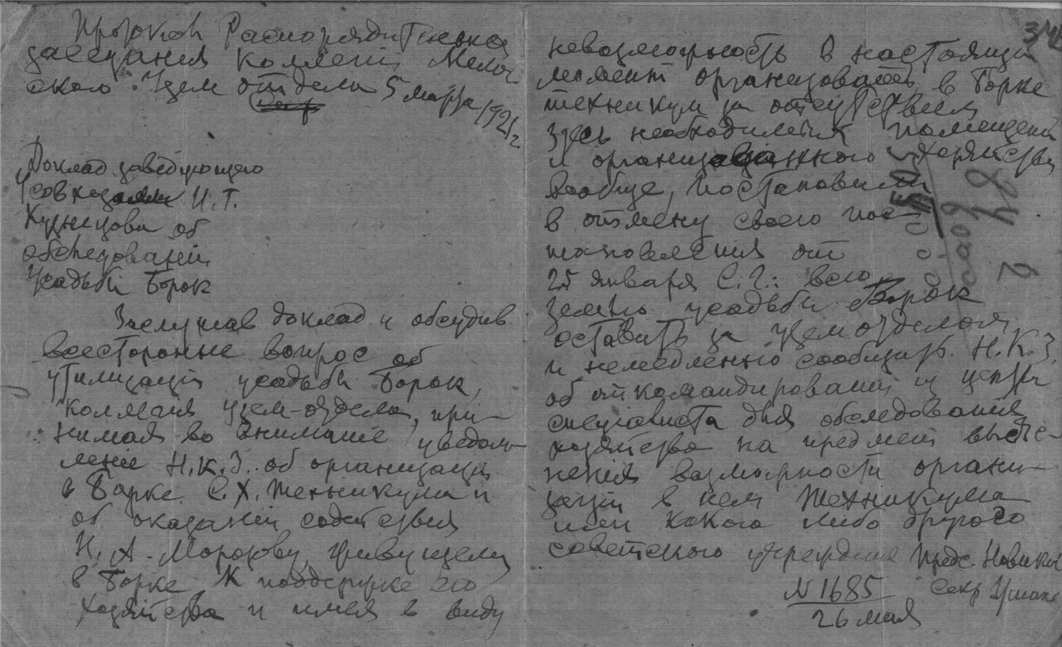 Распорядительного
заседания Коллегии
Уземотдела 5 марта 1921 г.
Доклад заведующего
Совхозами Н. Т.
Кузнецова об
обследовании
усадьбы Борок
Заслушав доклад и обсудив
всесторонне вопрос об
утилизации усадьбы Борок,
Коллегия Узем-отдела, при-
нимая во внимание уведом-
ление Н.К.З. об организации
в Борке С.Х. Техникума и
об оказании содействия
Н. А. Морозову, живущему
в Борке к поддержке его
хозяйства и имея в виду
невозможность в настоящий
момент организовать в Борке
техникум за отсутствием
здесь необходимых помещений
и организованного хозяйства
вообще, постановили
в отмену своего пос-
тановления от
25 января С.Г.: всю
землю усадьбы Борок
оставить за Уземотделом
и немедленно сообщить Н.К.З.
об откомандировании из центра
специалиста для обследования
хозяйства на предмет выясне-
ния возможности органи-
зации в нем Техникума
или какого либо другого
советского учреждения Пред. Новиков
Секр
N 1685
26 мая